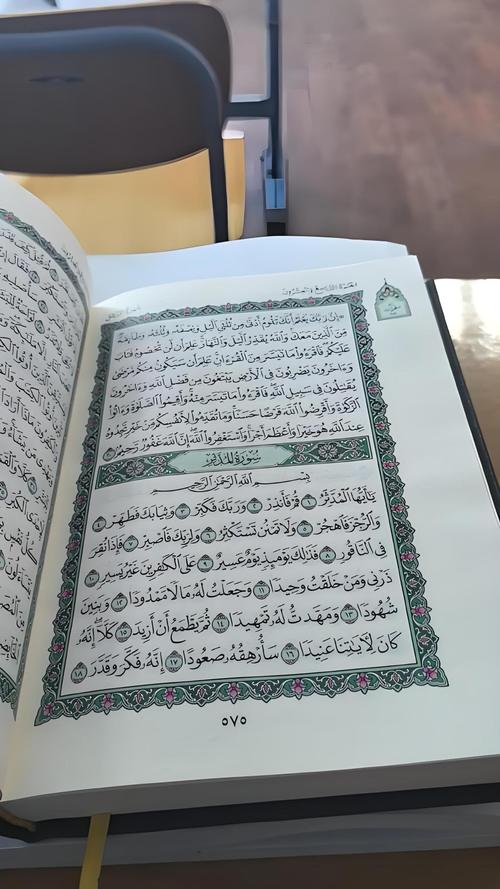 الجزء التاسع والعشرون
۞ إِنَّ رَبَّكَ يَعْلَمُ أَنَّكَ تَقُومُ أَدْنَىٰ مِن ثُلُثَيِ ٱلَّيْلِ وَنِصْفَهُۥ وَثُلُثَهُۥ وَطَآئِفَةٌ
مِّنَ ٱلَّذِينَ مَعَكَۚ وَٱللَّهُ يُقَدِّرُ ٱلَّيْلَ وَٱلنَّهَارَۚ عَلِمَ أَن لَّن تُحْصُوهُ فَتَابَ
عَلَيْكُمْۖ فَٱقْرَءُوا۟ مَا تَيَسَّرَ مِنَ ٱلْقُرْءَانِۚ عَلِمَ أَن سَيَكُونُ مِنكُم مَّرْضَىٰ
وَءَاخَرُونَ يَضْرِبُونَ فِى ٱلْأَرْضِ يَبْتَغُونَ مِن فَضْلِ ٱللَّهِۙ وَءَاخَرُونَ
يُقَٰتِلُونَ فِى سَبِيلِ ٱللَّهِۖ فَٱقْرَءُوا۟ مَا تَيَسَّرَ مِنْهُۚ وَأَقِيمُوا۟ ٱلصَّلَوٰةَ وَءَاتُوا۟
ٱلزَّكَوٰةَ وَأَقْرِضُوا۟ ٱللَّهَ قَرْضًا حَسَنًاۚ وَمَا تُقَدِّمُوا۟ لِأَنفُسِكُم مِّنْ خَيْرٍ تَجِدُوهُ
عِندَ ٱللَّهِ هُوَ خَيْرًا وَأَعْظَمَ أَجْرًاۚ وَٱسْتَغْفِرُوا۟ ٱللَّهَۖ إِنَّ ٱللَّهَ غَفُورٌ رَّحِيمٌ ٢٠
سُورَةُ المُدَّثِّرِ
بِسْمِ ٱللَّهِ ٱلرَّحْمَٰنِ ٱلرَّحِيمِ
يَٰٓأَيُّهَا ٱلْمُدَّثِّرُ ١ قُمْ فَأَنذِرْ ٢ وَرَبَّكَ فَكَبِّرْ ٣ وَثِيَابَكَ فَطَهِّرْ ٤
وَٱلرُّجْزَ فَٱهْجُرْ ٥ وَلَا تَمْنُن تَسْتَكْثِرُ ٦ وَلِرَبِّكَ فَٱصْبِرْ ٧ فَإِذَا نُقِرَ
فِى ٱلنَّاقُورِ ٨ فَذَٰلِكَ يَوْمَئِذٍ يَوْمٌ عَسِيرٌ ٩ عَلَى ٱلْكَٰفِرِينَ غَيْرُ يَسِيرٍ ١٠
ذَرْنِى وَمَنْ خَلَقْتُ وَحِيدًا ١١ وَجَعَلْتُ لَهُۥ مَالًا مَّمْدُودًا ١٢ وَبَنِينَ
شُهُودًا ١٣ وَمَهَّدتُّ لَهُۥ تَمْهِيدًا ١٤ ثُمَّ يَطْمَعُ أَنْ أَزِيدَ ١٥ كَلَّآۖ إِنَّهُۥ
كَانَ لِءَايَٰتِنَا عَنِيدًا ١٦ سَأُرْهِقُهُۥ صَعُودًا ١٧ إِنَّهُۥ فَكَّرَ وَقَدَّرَ ١٨
٥٧٥